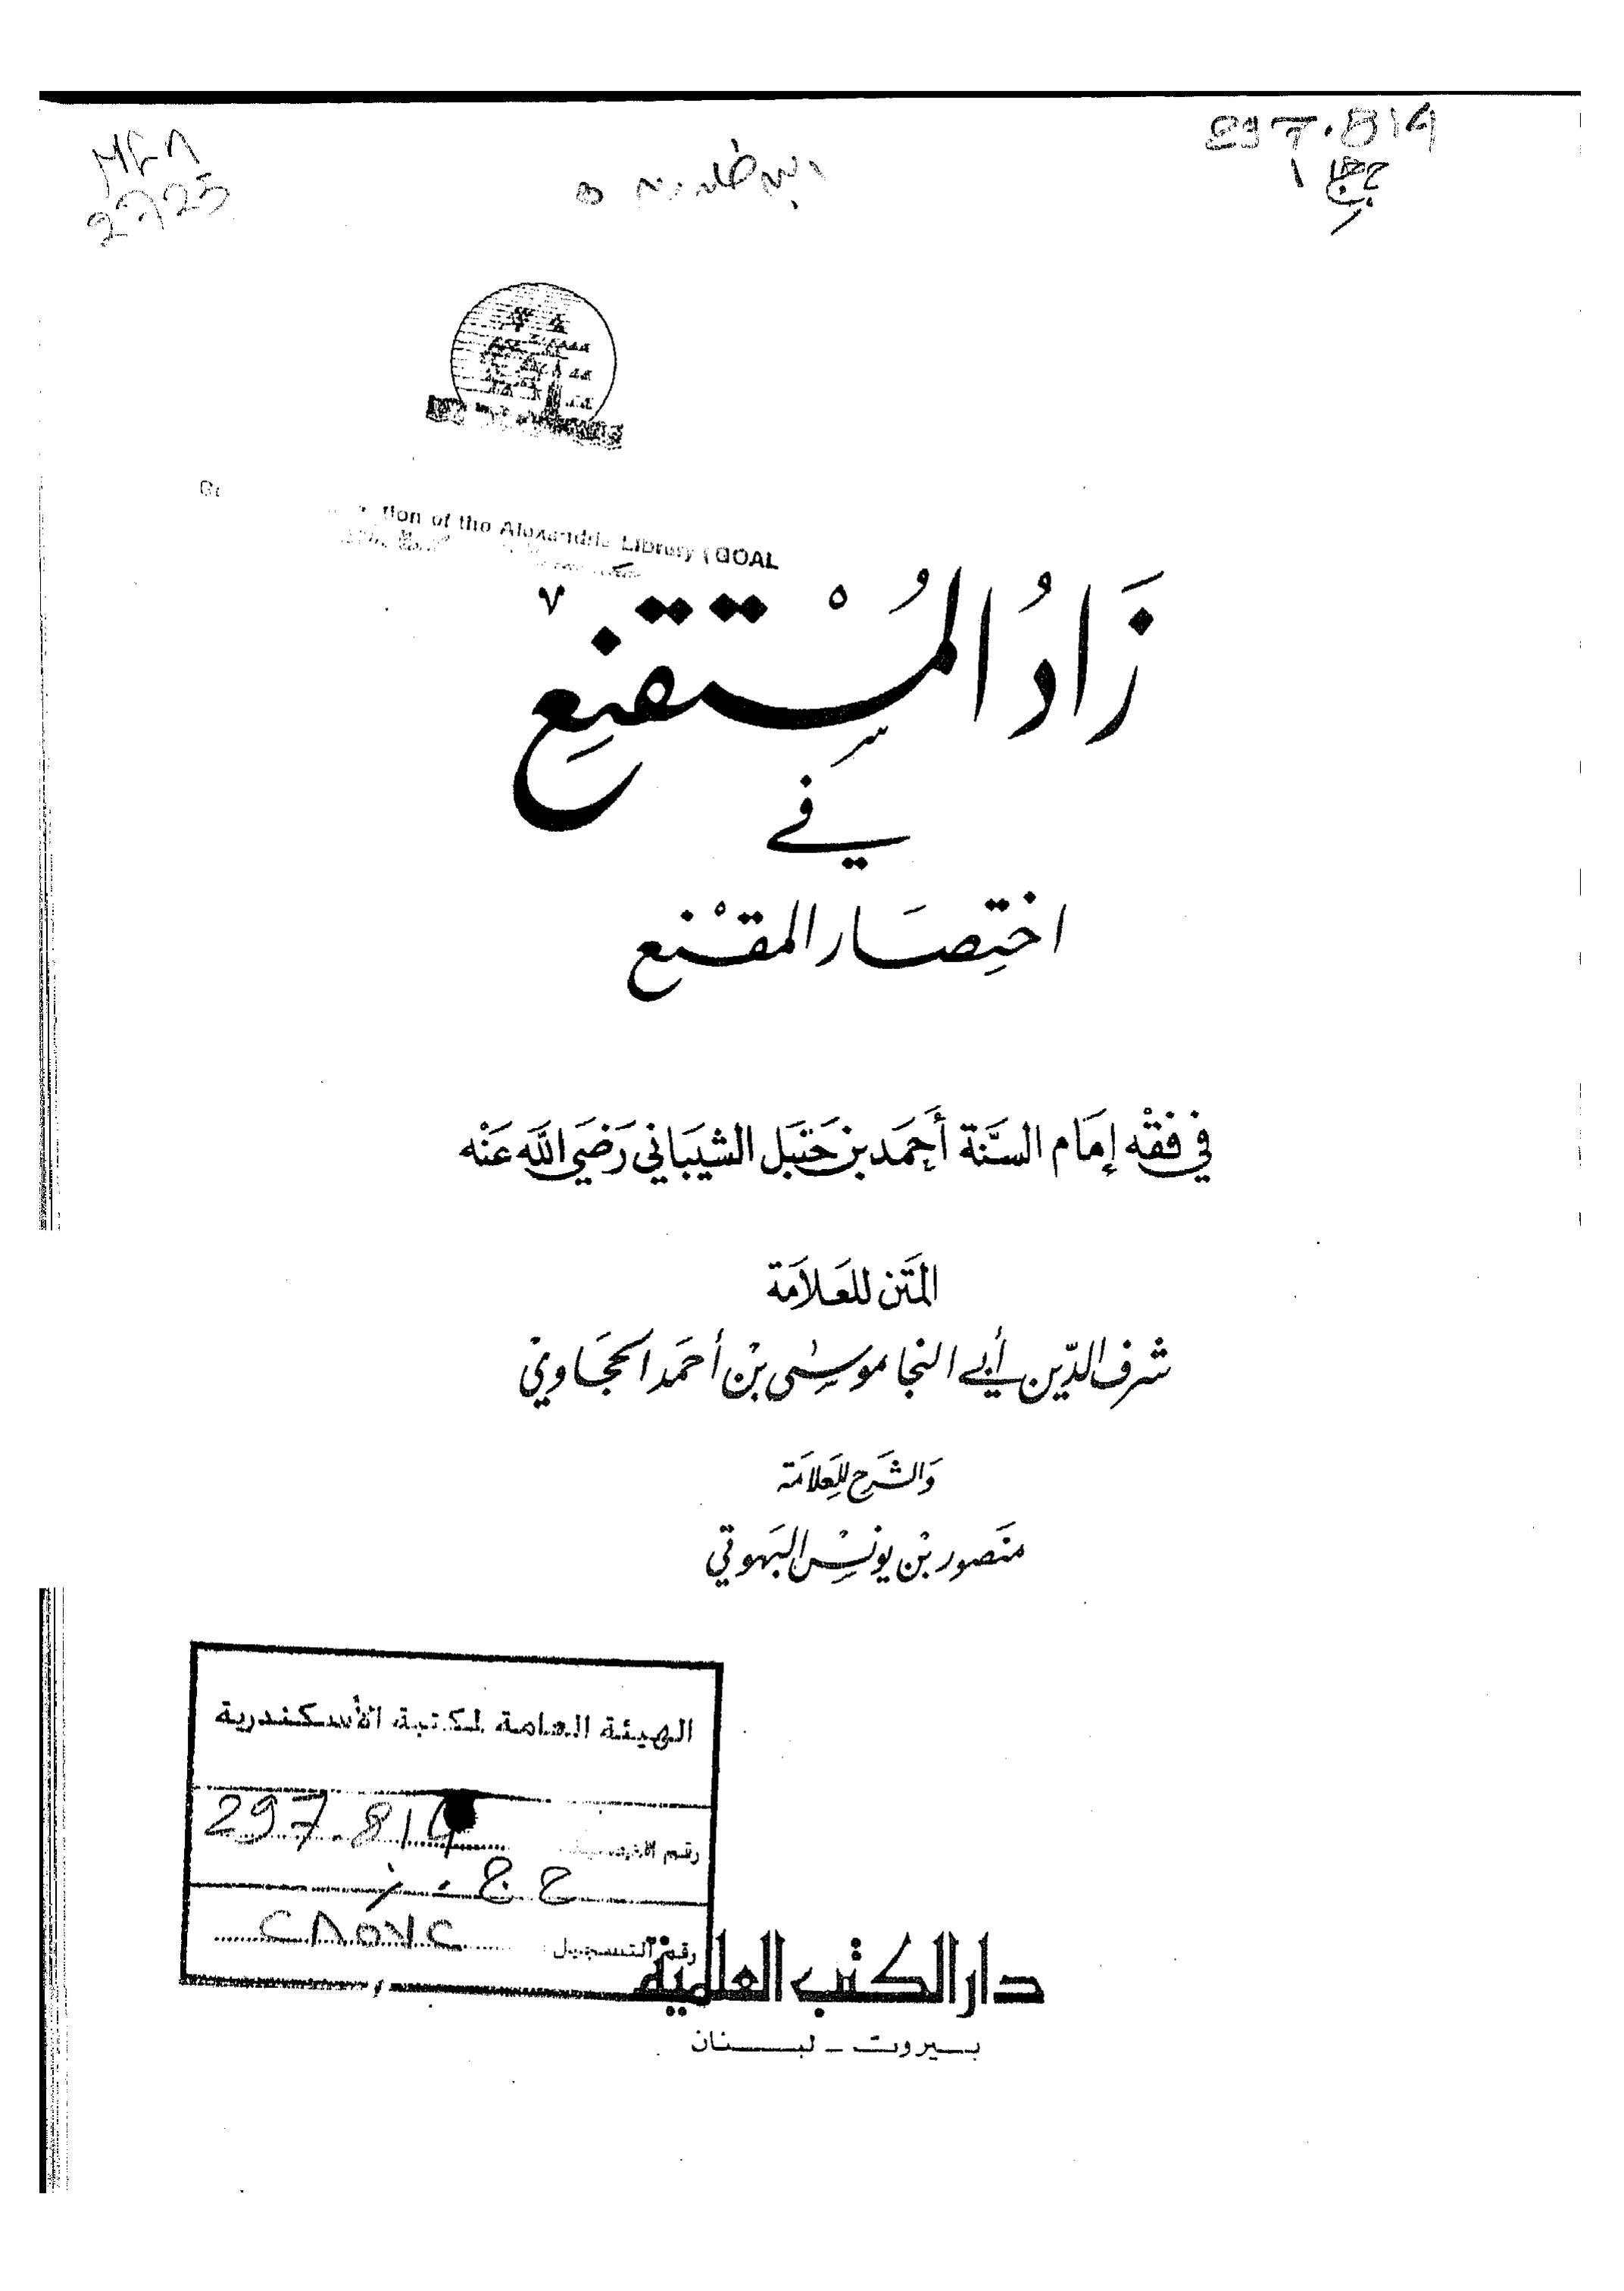 297.814
tion of the Alexandria Library (GOAL
زَادُ المُسْتَقْنِع
في
اختِصَار المقْنِع
في فقْه إمَام السَّنَة أحمَد بن حَنبَل الشيبَاني رَضيَ اللَّه عَنْه
المَتن للعَلاَمَة
شرف الدّين أبي النجا موسَى بْن أحمَد الحجَاويْ
وَالشَرح للعَلامَة
منَصور بْن يونسْ البَهوتي
الهيئة العامة لمكتبة الأسكندرية
297.814
رقم
ح ج . ز
رقم التسجيل
دار الكتب العلمية
بيروت - لبنان